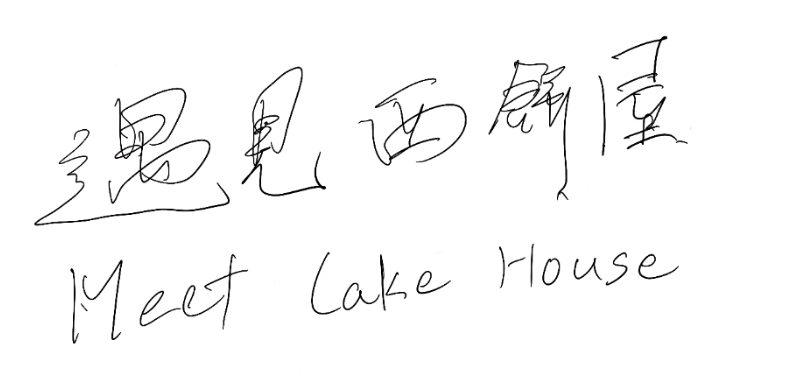 遇見西餅屋
Meet Cake House